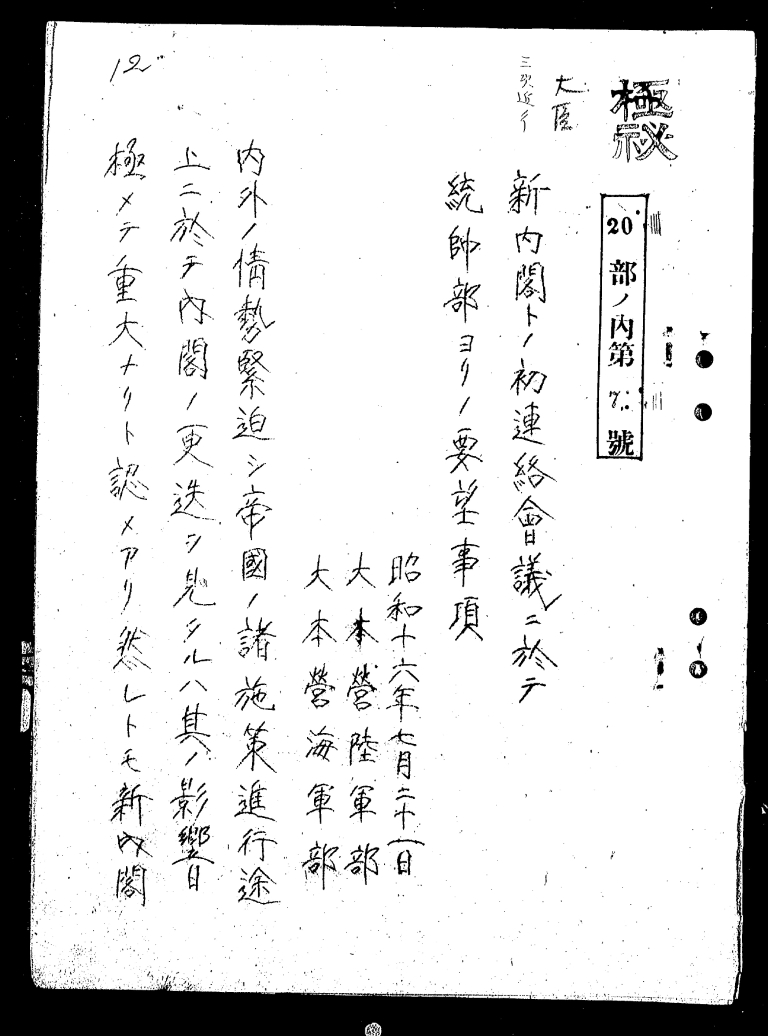 極秘
20部ノ内第7號
大臣
新内閣トノ初連絡會議ニ於テ
統帥部ヨリノ要望事項
昭和十六年七月二十一日
大本營陸軍部
大本營海軍部
内外ノ情勢緊迫シ帝國ノ諸施策進行途
上ニ於テ内閣ノ更迭ヲ見タルハ其ノ影響
極メテ重大ナリト認メアリ然レトモ新内閣
12